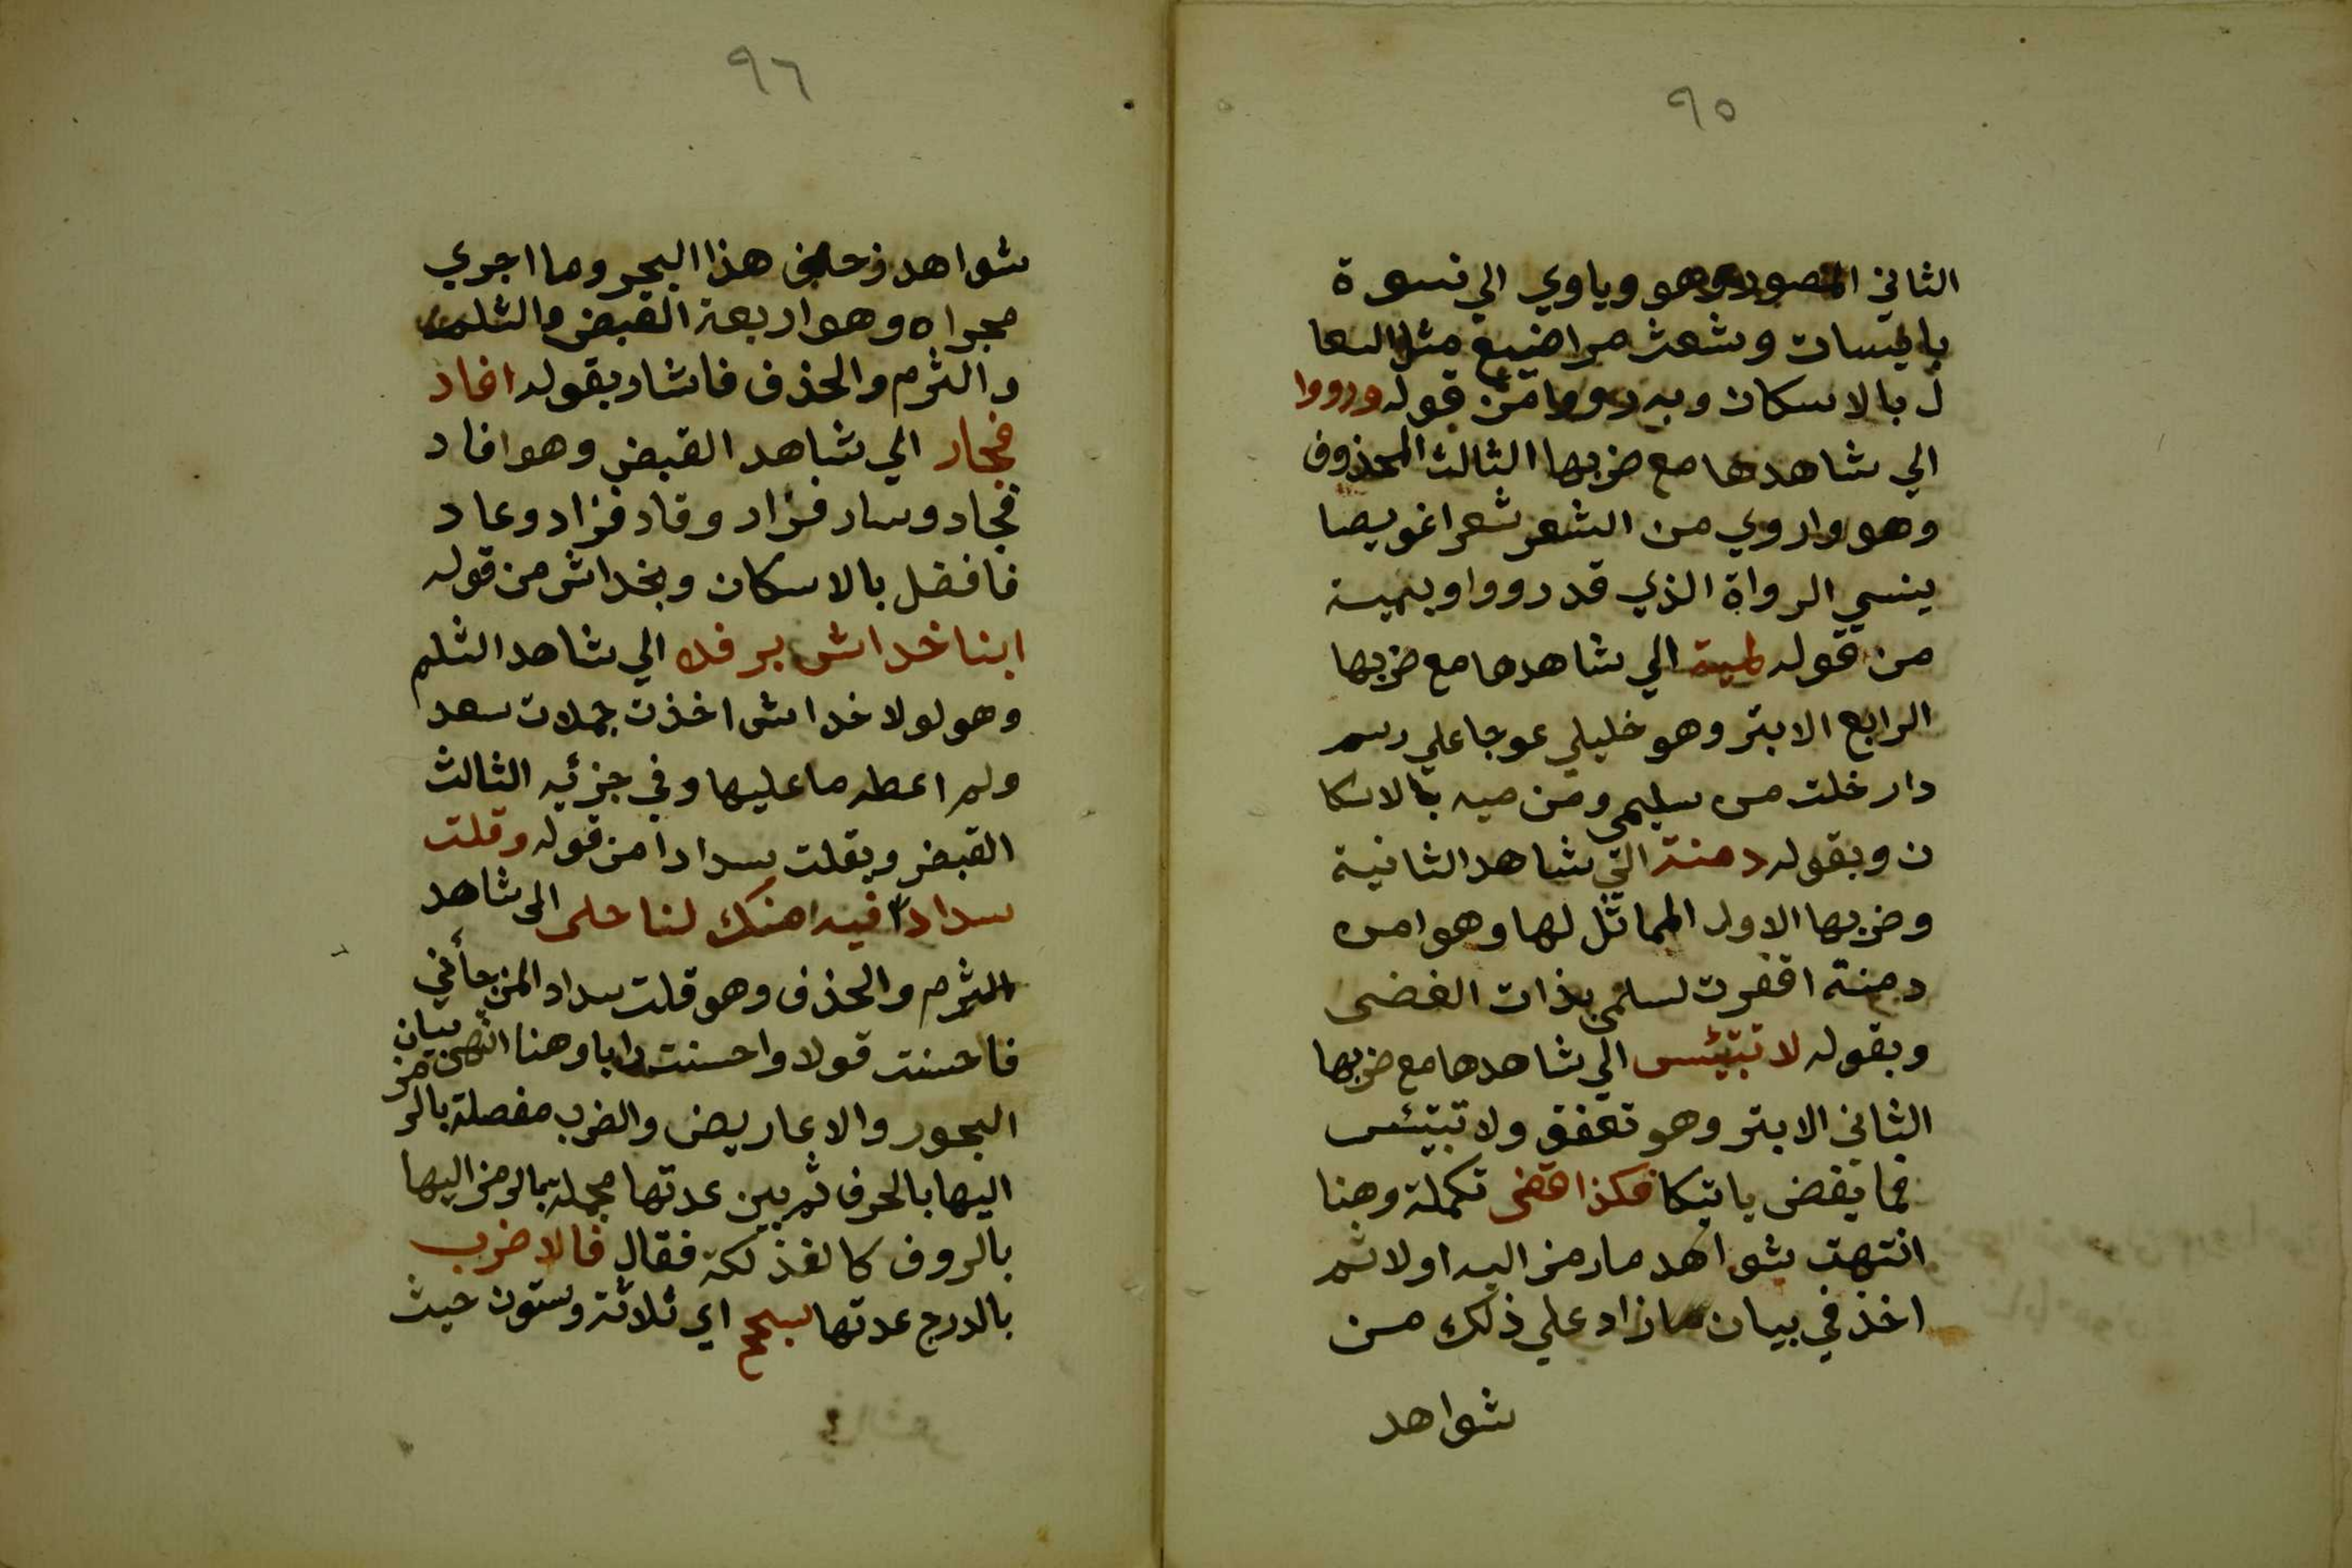 ٩٥
الثاني المقصور وهو وياوي الي نسوة
بايسات وشعث مراضيع مثل السعا
ل بالاسكان وبرووا من قوله ورووا
الي شاهدها مع ضربها الثالث المحذوف
وهو واروي من الشعر شعرا غويصا
ينسي الرواة الذي قد رووا وبمية
من قوله لمية الي شاهدها مع ضربها
الرابع الابتر وهو خليلي عوجا علي رسم
دار خلت من سليمي ومن ميه بالاسكا
ن وبقوله دمنة الي شاهد الثانية
وضربها الاول المماثل لها وهو امن
دمنة اقفرت لسلمي بذات الغضى
وبقوله لا تبتئس الي شاهدها مع ضربها
الثاني الابتر وهو تعفف ولا تبتئس
فما يقض ياتيكا فكذا قضى تكملة وهنا
انتهت شواهد ما رمز اليه اولا ثم
اخذ في بيان ما زاد علي ذلك من
شواهد
٩٦
شواهد زحافي هذا البحر وما اجري
مجراه وهو اربعة القبض والثلم
والثرم والحذف فاشار بقوله افاد
فجار الي شاهد القبض وهو افاد
فجاد وساد فزاد وقاد فزاد وعاد
فافضل بالاسكان وبخداش من قوله
ابنا خداش برفده الي شاهد الثلم
وهو لولا خداش اخذت جملات سعد
ولم اعطه ما عليها وفي جزئيه الثالث
القبض وبقلت سدادا من قوله وقلت
سدادا فيه امنك لنا حلى الى شاهد
الثرم والحذف وهو قلت سداد المن جأني
فاحسنت قولا واحسنت رايا وهنا انتهى بيان
البحور والاعاريض والضرب مفصلة بالرمز
اليها بالحرف ثم بين عدتها مجملة بما لرمز اليها
بالروف كالفذلكة فقال فالاضرب
بالدرج عدتها سجح اي ثلاثة وستون حيث